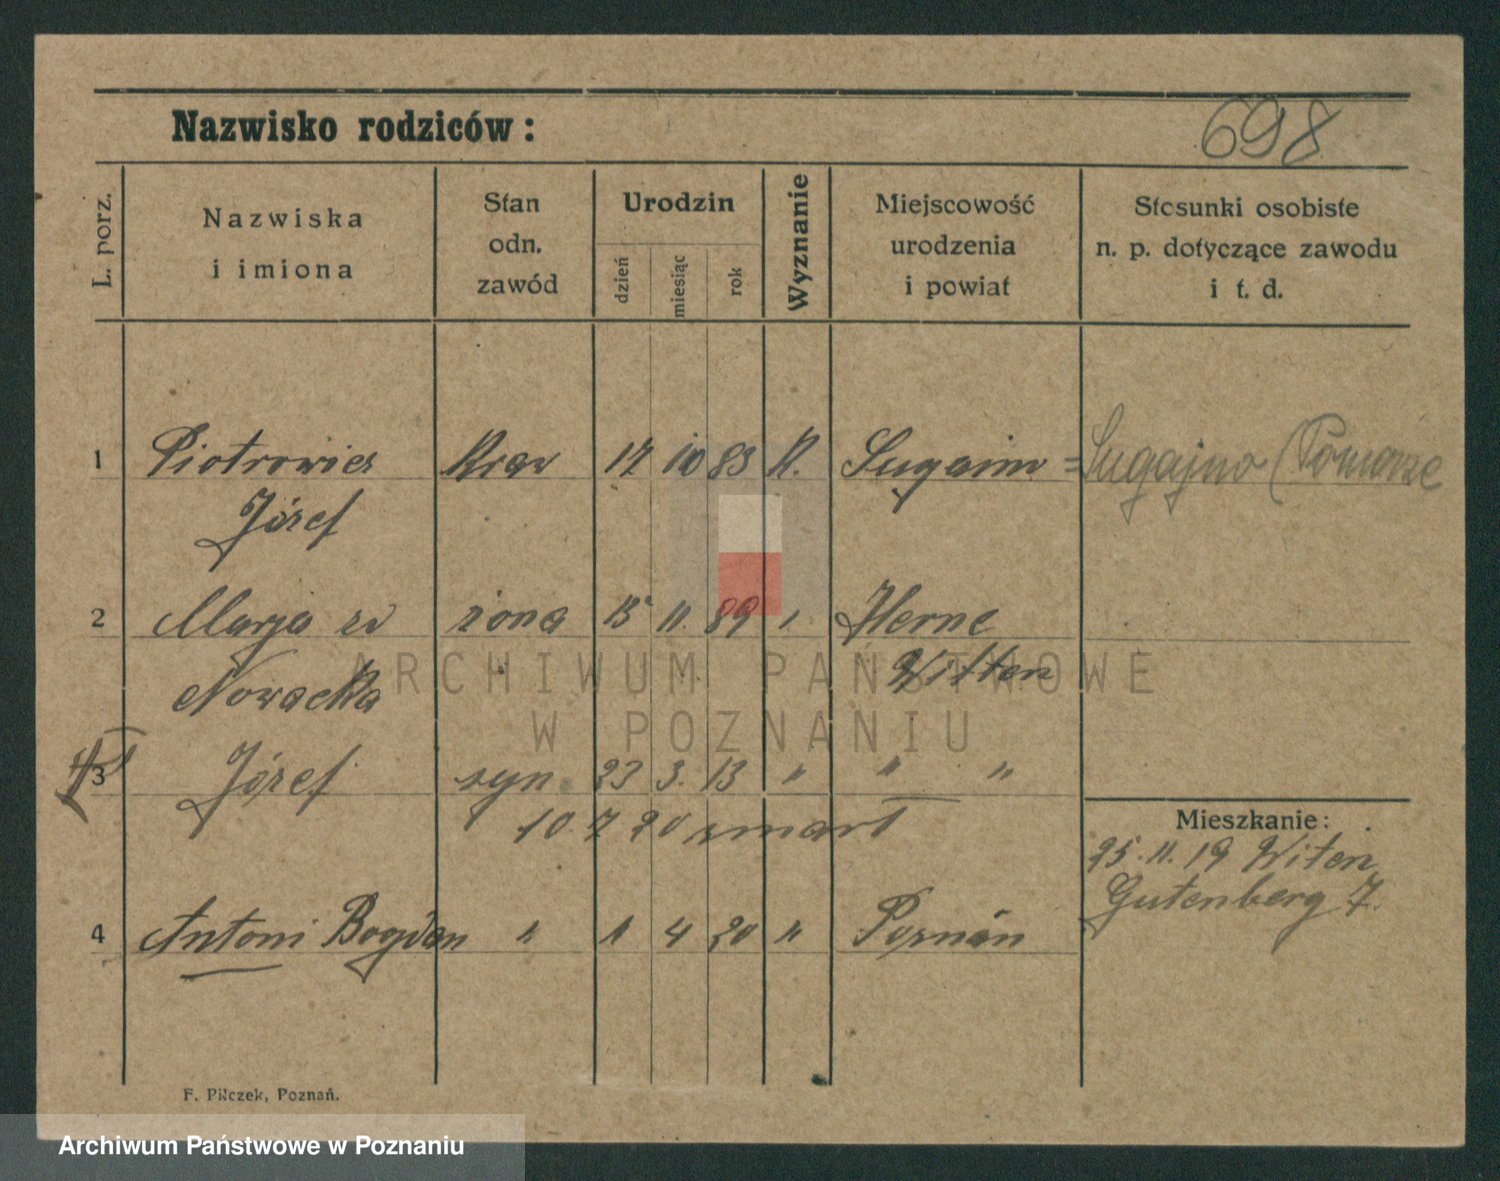 Nazwisko rodziców:
698
L. porz.
Nazwiska
i imiona
Stan
odn.
zawód
Urodzin
dzień
miesiąc
rok
Wyznanie
Miejscowość
urodzenia
i powiat
Stosunki osobiste
n. p. dotyczące zawodu
i t. d.
1 Piotrowicz 17 10 83 K. Sugaino = Sugajno (Pomorze
Józef
2 Marja zd żona 15 11 89 " Herne
Nowacka Witten
3 Józef syn 23 3. 13 " " "
10 7 20 zmarł
Mieszkanie:
25. 11. 19 Witen
Gutenberg 7.
4 Antoni Bogdan " 1 4 20 " Poznań
F. Pilczek, Poznań.
ARCHIWUM PAŃSTWOWE
W POZNANIU
Archiwum Państwowe w Poznaniu